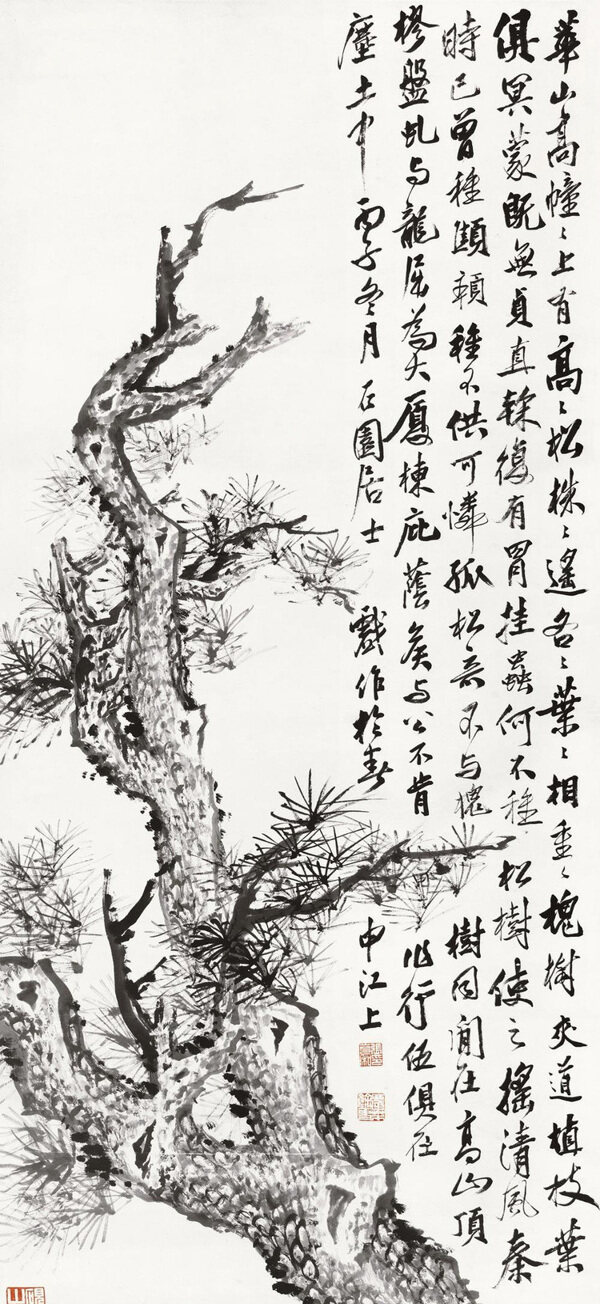 華山高幢〻上有高〻松株〻遙各〻葉〻相重〻槐樹夾道植枝葉
俱冥蒙既無貞直榦復有罥挂蟲何不種松樹使之搖清風秦
時已曾種顦顇種不供可憐孤松意不与槐樹同閒在高山頂
樛盤虬与龍屈為大厦棟庇蔭矦与公不肯作行伍俱在
塵土中 丙子冬月石園居士戲作於春申江上